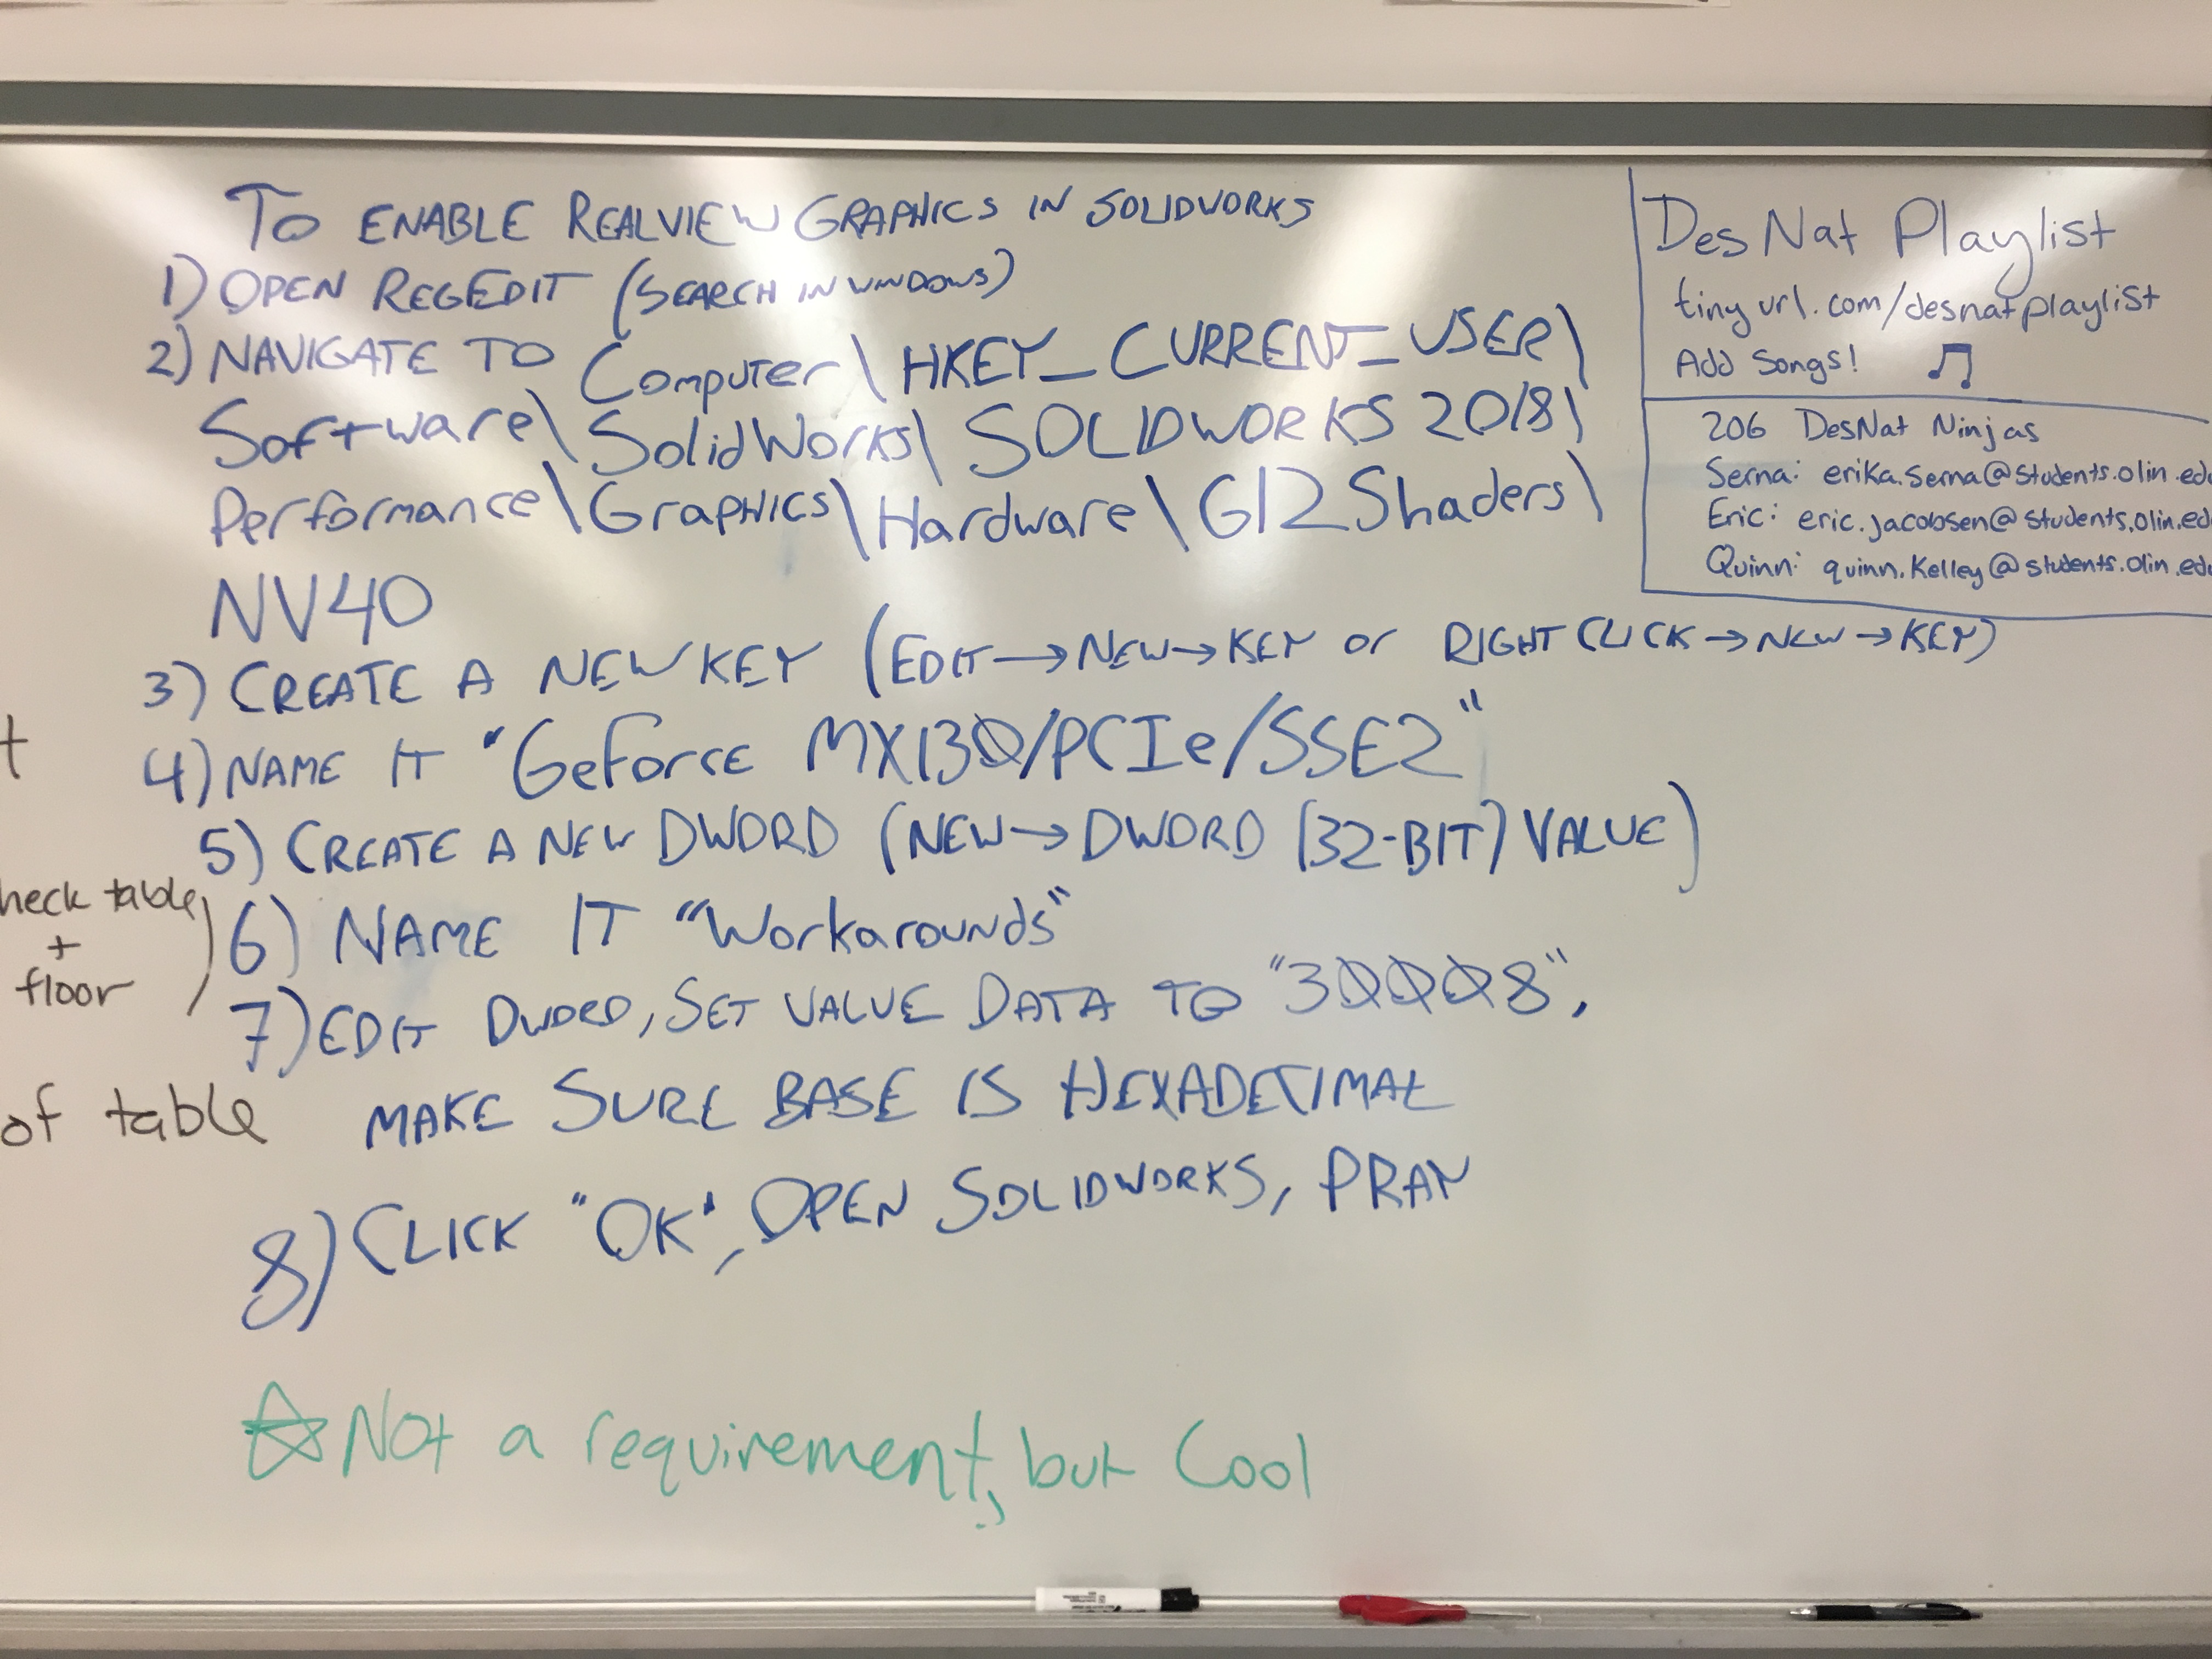 To ENABLE REALVIEW GRAPHICS IN SOLIDWORKS
1) OPEN REGEDIT (SEARCH IN WINDOWS)
2) NAVIGATE TO Computer\HKEY_CURRENT_USER\
Software\SolidWorks\SOLIDWORKS 2018\
Performance\Graphics\Hardware\Gl2Shaders\
NV40
3) CREATE A NEW KEY (EDIT→NEW→KEY or RIGHT CLICK→NEW→KEY)
4) NAME IT "GeForce MX130/PCIe/SSE2"
5) CREATE A NEW DWORD (NEW→DWORD (32-BIT) VALUE)
6) NAME IT "Workarounds"
7) EDIT DWORD, SET VALUE DATA TO "30008",
MAKE SURE BASE IS HEXADECIMAL
8) CLICK "OK", OPEN SOLIDWORKS, PRAY
☆ Not a requirement, but Cool
DesNat Playlist
tinyurl.com/desnatplaylist
Add Songs! ♫
206 DesNat Ninjas
Serna: erika.serna@students.olin.edu
Eric: eric.jacobsen@students.olin.ed
Quinn: quinn.kelley@students.olin.edu
t
heck table
+
floor
)
of table